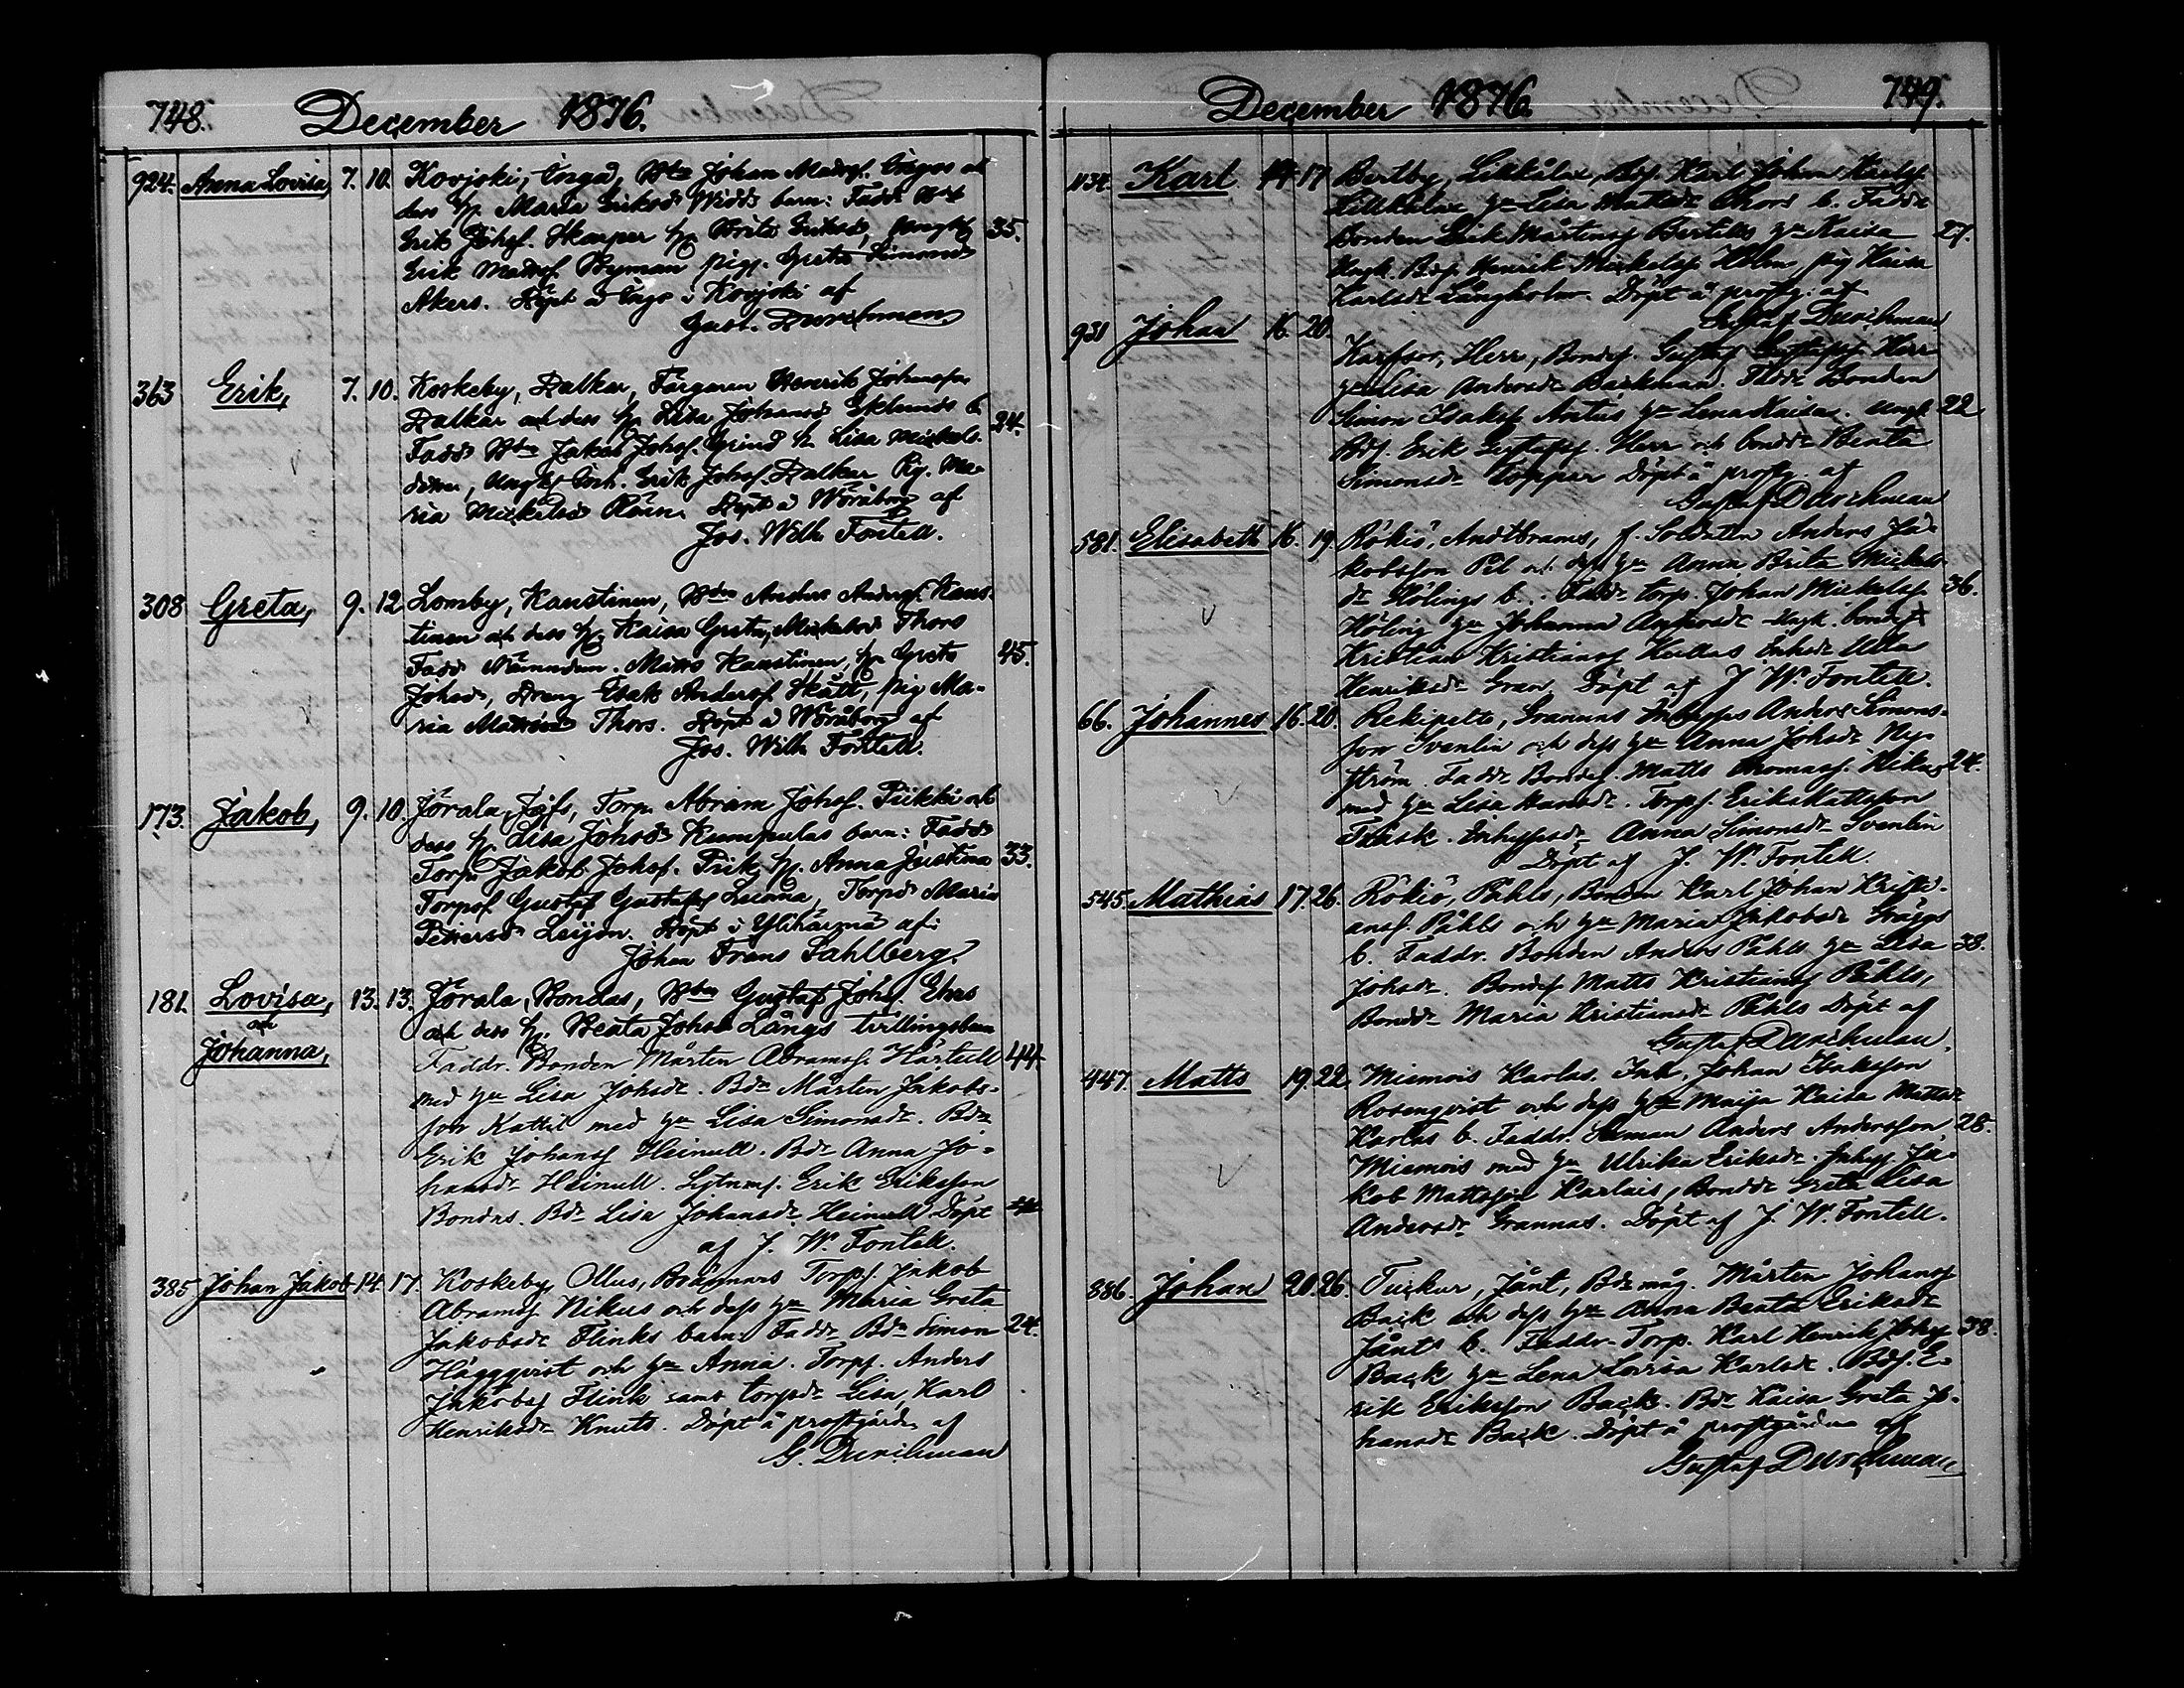 748. December 1876.
924. Anna Lovisa, 7. 10. Kovjoki, Inga, Bdn Johan Matsss. Ingas och
dess h. Maria Eriksdr Widds barn: Fadd. Bdn
Erik Johss. Skarper h. Brita Eriksdr, yngl. 35.
Erik Matsss. Byman pig. Greta Simonsdr
Akers. Döpt å Inga i Kovjoki af
Gust. Durchman
363 Erik, 7. 10. Koskeby, Dalkar, Färgaren Henrik Johansson
Dalkar och dess h. Lisa Johansdr Eklunds b.
Fadd. Bdn Jakob Johss. Grind h. Lisa Mickels- 24.
doter, Yngl. Erik Johss. Dalkar Pig. Ma-
ria Mickelsdr Döpt å Vöråborg af
Jos. Wilh. Fontell.
308 Greta, 9. 12. Lomby, Kaustinen, Bdn Anders Andersss. Kaus-
tinen och dess h. Kaisa Greta Mickelsdr Thors
Fadd. Nämndem. Matts Kaustinen, h. Greta 45.
Johsdr, Dreng Isak Anderss. Skått, pig Ma-
ria Mattsdr Thors. Döpt å Vöråborg af
Jos. Wilh. Fontell.
173. Jakob, 9. 10. Jörala, Jöfs, Torp. Abram Johss. Piikki och
dess h. Lisa Johsdr Kumpulas barn: Fadd.
Torp. Jakob Johss. Piik, h. Anna Justina 33.
Torps. Gustaf Gustafss Leinna, Torpdr Maria
Pettersdr Leijon. Döpt i Ylihärmä af:
Johan Frans Sahlberg.
181. Lovisa, 13. 13. Jörala, Bondas, Bdn Gustaf Johss. Ehrs
och och dess h. Beata Johsdr Långs tvillingsbarn
Johanna, Faddr. Bonden Mårten Abramss. Härtull 44.
med hu Lisa Johsdr. Bdn Mårten Jakobs-
son Kattil med hu Lisa Simonsdr. Bdn
Erik Johanss Heinull. Bdr Anna Jo-
hansdr Heinull. Erik Eriksson
Bondas. Bdr Lisa Johansdr Heinull Döpt
af J. W. Fontell.
385 Johan Jakob 14. 17. Koskeby, Ollus, Brännars Torps. Jakob
Abramss Nikus och dess hu Maria Greta
Jakobsdr Flinks barn. Faddr. Bdn Simon 24.
Häggqvist och hu Anna. Torps. Anders
Jakobss Flink samt torpdr Lisa Karl
Henriksdr Knuts. Döpt å prostgården af
G. Durchman
December 1876. 749.
Karl 17 Bertby, Lillkålax, Bds. Karl Johan Karlss
Lillkålax hu Lisa Mattsdr Thors b. Faddr
Bonden Erik Mårtenss Bertills hu Kaisa 27.
Yngl. Bds. Henrik Mickelss Holm pig Kaisa
Karlsdr Långholm. Döpt å prostg. af
Gustaf Durchman
931 Johan 16. 20. Karfsor, Herr, Bondes. Gustaf Gustafss Herr
hu Lisa Andersdr Backman. Faddr Bonden
Simon Isakss Antus hu Lena Kaisa. Yngl. 22
Bds. Erik Gustafss. Herr och bonddr Beata
Simonsdr Toppar Döpt å prostg. af
Gustaf Durchman
581. Elisabeth 16. 19. Rökiö, Andtbrams, f. Soldaten Anders Ja-
kobsson Pil och dess hu Anna Brita Mickels-
dr Hölings b. Faddr torp. Johan Mickelss 36.
Höling hu Johanna Andersdr Yngl. bondes
Kristian Kristianss Kullas Inhdr Ulla
Henriksdr Gran Döpt af J. W. Fontell.
66. Johannes 16. 20. Rekipelto, Grannas Inhysess Anders Simons-
son Svenlin och dess hu Anna Johsdr Ny-
ström. Faddr Bondes. Matts Thomass. Hikus 24.
med hu Lisa Hansdr. Torps. Erik Mattsson
Flask. Inhysesdr Anna Simonsdr Svenlin
Döpt af J. W. Fontell.
545 Mathias 17. 26. Rökiö, Påhls, Bonden Karl Johan Kristi-
anss. Påhls och hu Maria Jakobsdr Gräggs
b. Faddr. Bonden Anders Påhls hu Lisa 38.
Johsdr. Bondes Matts Kristianss Påhls,
Bonddr Maria Kristiansdr Påhls Döpt af
Gustaf Durchman.
447. Matts 19. 22. Miemois Karlas. Inh. Johan Isaksson
Rosenqvist och dess hu Maija Kaisa Mattsdr
Karlas b. Faddr. Anders Andersson 28.
Miemois med hu Ulrika Eriksdr. Inhys. Ja-
kob Mattsson Karlais, Bonddr Greta Lisa
Andersdr Grannas. Döpt af J. W. Fontell.
886. Johan 20. 26. Tuckur, Jånt, Bdr måg. Mårten Johanss
Back och dess hu Anna Beata Eriksdr
Jånts b. Faddr. Torp. Karl Henrik Johss 38.
Back hu Lena Lovisa Karlsdr. Bds. E-
rik Eriksson Back. Bdr Kaisa Greta Jo-
hansdr Back. Döpt å prostgården af
Gustaf Durchman